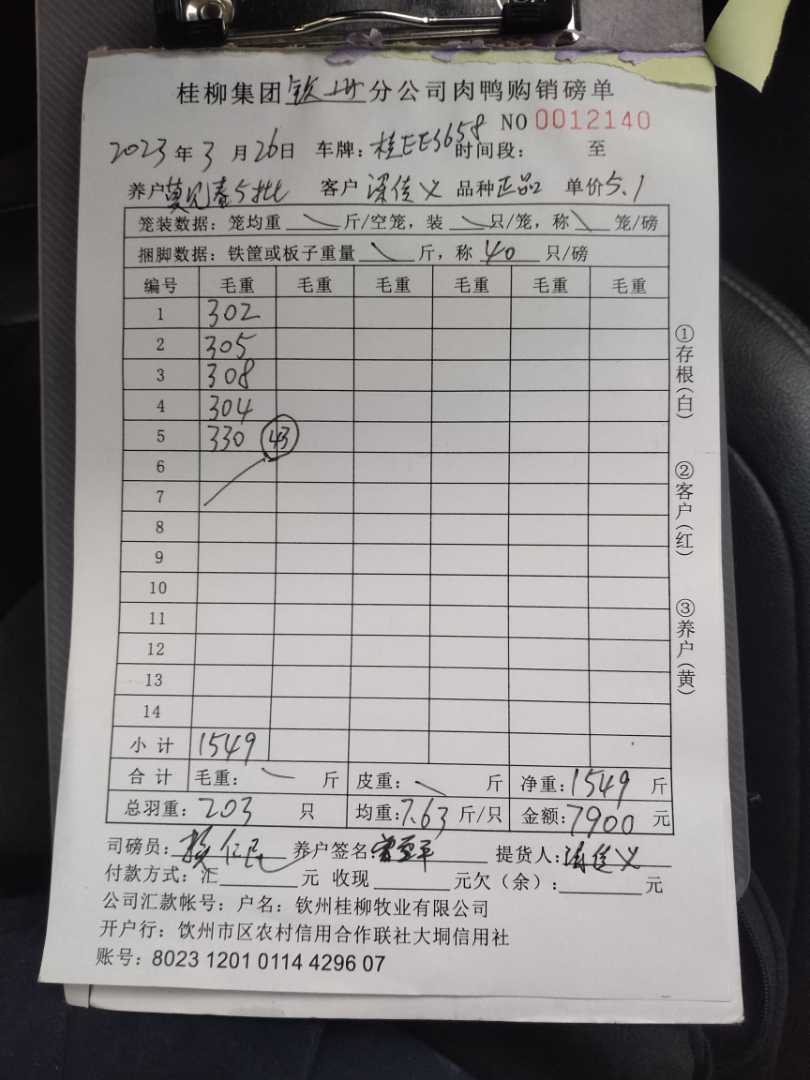 桂柳集团钦州分公司肉鸭购销磅单
NO 0012140
2023年3月26日 车牌:桂EE3658 时间段: 至
养户 5批 客户 义 品种正品 单价5.1
笼装数据:笼均重 斤/空笼,装 只/笼,称 笼/磅
捆脚数据:铁筐或板子重量 斤,称 40 只/磅
编号 毛重 毛重 毛重 毛重 毛重 毛重
1 302
2 305
3 308
4 304
5 330 43
6
7
8
9
10
11
12
13
14
小计 1549
合计 毛重: 斤 皮重: 斤 净重:1549斤
总羽重:203只 均重:7.63斤/只 金额:7900元
司磅员: 仁民 养户签名: 提货人: 义
付款方式:汇 元 收现 元欠(余): 元
公司汇款帐号:户名:钦州桂柳牧业有限公司
开户行:饮州市区农村信用合作联社大垌信用社
账号:8023 1201 0114 4296 07
①存根(白)
②客户(红)
③养户(黄)